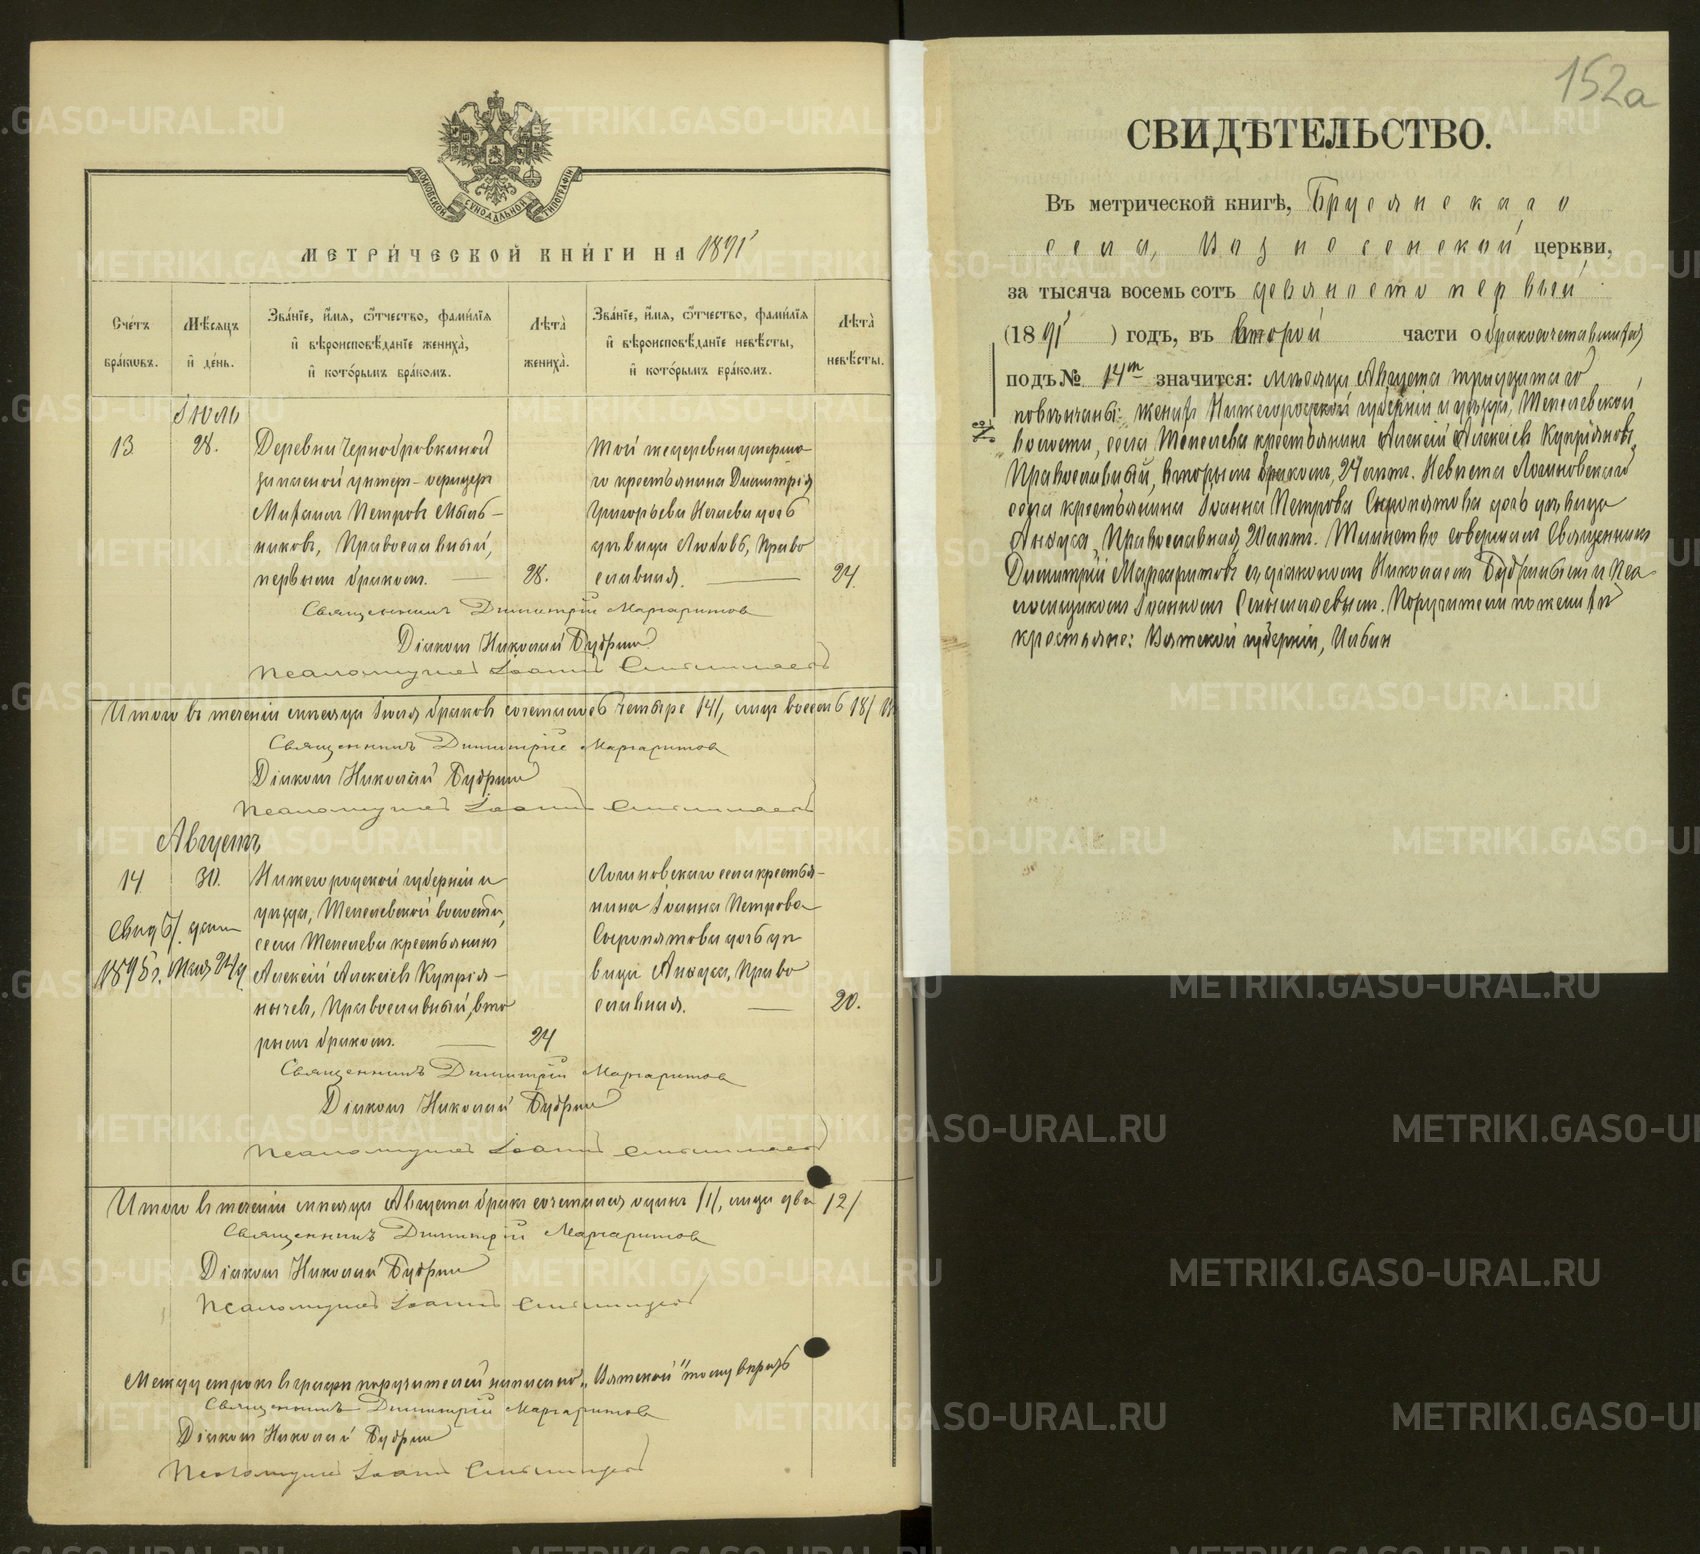 МЕТРИ́ЧЕСКОЙ КНИ́ГИ НА 1891
МОСКОВСКОЙ СѴНОДАЛЬНОЙ ТИПОГРАФІИ
Сче́тъ бра́кωвъ.
Мѣ́сѧцъ и҆ де́нь.
Зва́нїе, и҆́мѧ, ѻ҆́тчество, фами́лїѧ и҆ вѣроисповѣ́данїе жениха̀, и҆ кото́рымъ бра́комъ.
Лѣта̀ жениха̀.
Зва́нїе, и҆́мѧ, ѻ҆́тчество, фами́лїѧ и҆ вѣроисповѣ́данїе невѣ́сты, и҆ кото́рымъ бра́комъ.
Лѣта̀ невѣ́сты.
Іюль
13
28.
Деревни Чернобровкиной
запасной унтер-офицеръ
Михаилъ Петровъ Мыль-
никовъ, Православный,
первымъ бракомъ.
28.
Той же деревни умерша-
го крестьянина Димитрія
Григорьева Нечаева дочь
дѣвица Любовь, Право
славная.
24
Священникъ Димитрій Маргаритовъ
Діаконъ Николай Будринъ
Псаломщикъ Іоаннъ
Итого въ теченіи мѣсяца Іюля браковъ сочеталось четыре /4/, лицъ восемь /8/
Священникъ Димитрій Маргаритовъ
Діаконъ Николай Будринъ
Псаломщикъ Іоаннъ
Августъ
14
30.
Свид. дано
1895 г. Мая 24 д
Нижегородской губерніи и
уѣзда, Шепелевской волости,
села Шепелева крестьянинъ
Алексій Алексіевъ Купрія-
ночевъ, Православный, вто
рымъ бракомъ.
24
Логиновскаго села крестья-
нина Іоанна Петрова
Сыропятова дочь дѣ
вица Анфуса, Право
славная.
20.
Священникъ Димитрій Маргаритовъ
Діаконъ Николай Будринъ
Псаломщикъ Іоаннъ
Итого въ теченіи мѣсяца Августа бракъ сочетался одинъ /1/, лица два /2/
Священникъ Димитрій Маргаритовъ
Діаконъ Николай Будринъ
Псаломщикъ Іоаннъ
Между строкъ въ графѣ поручителей написано „Вятской" тому вѣрить
Священникъ Димитрій Маргаритовъ
Діаконъ Николай Будринъ
Псаломщикъ Іоаннъ
152а
СВИДѢТЕЛЬСТВО.
Въ метрической книгѣ, Бруснскаго
села, Вознесенской церкви,
за тысяча восемь сотъ девяносто первый
(1891) годъ, въ второй части о бракосочетавшихся
подъ № 14мъ значится: мѣсяца Августа тридцатаго
повѣнчаны: женихъ Нижегородской губерніи и уѣзда, Шепелевской
волости, села Шепелева крестьянинъ Алексій Алексіевъ Купріяновъ,
Православный, вторымъ бракомъ, 24 лѣтъ. Невѣста Логиновскаго
села крестьянина Іоанна Петрова Сыропятова дочь дѣвица
Анфуса, Православная, 20 лѣтъ. Таинство совершалъ Священникъ
Димитрій Маргаритовъ съ діакономъ Николаемъ Будринымъ и Пса
ломщикомъ Іоанномъ. Поручители по женихѣ
крестьяне: Вятской губерніи,
№
METRIKI.GASO-URAL.RU